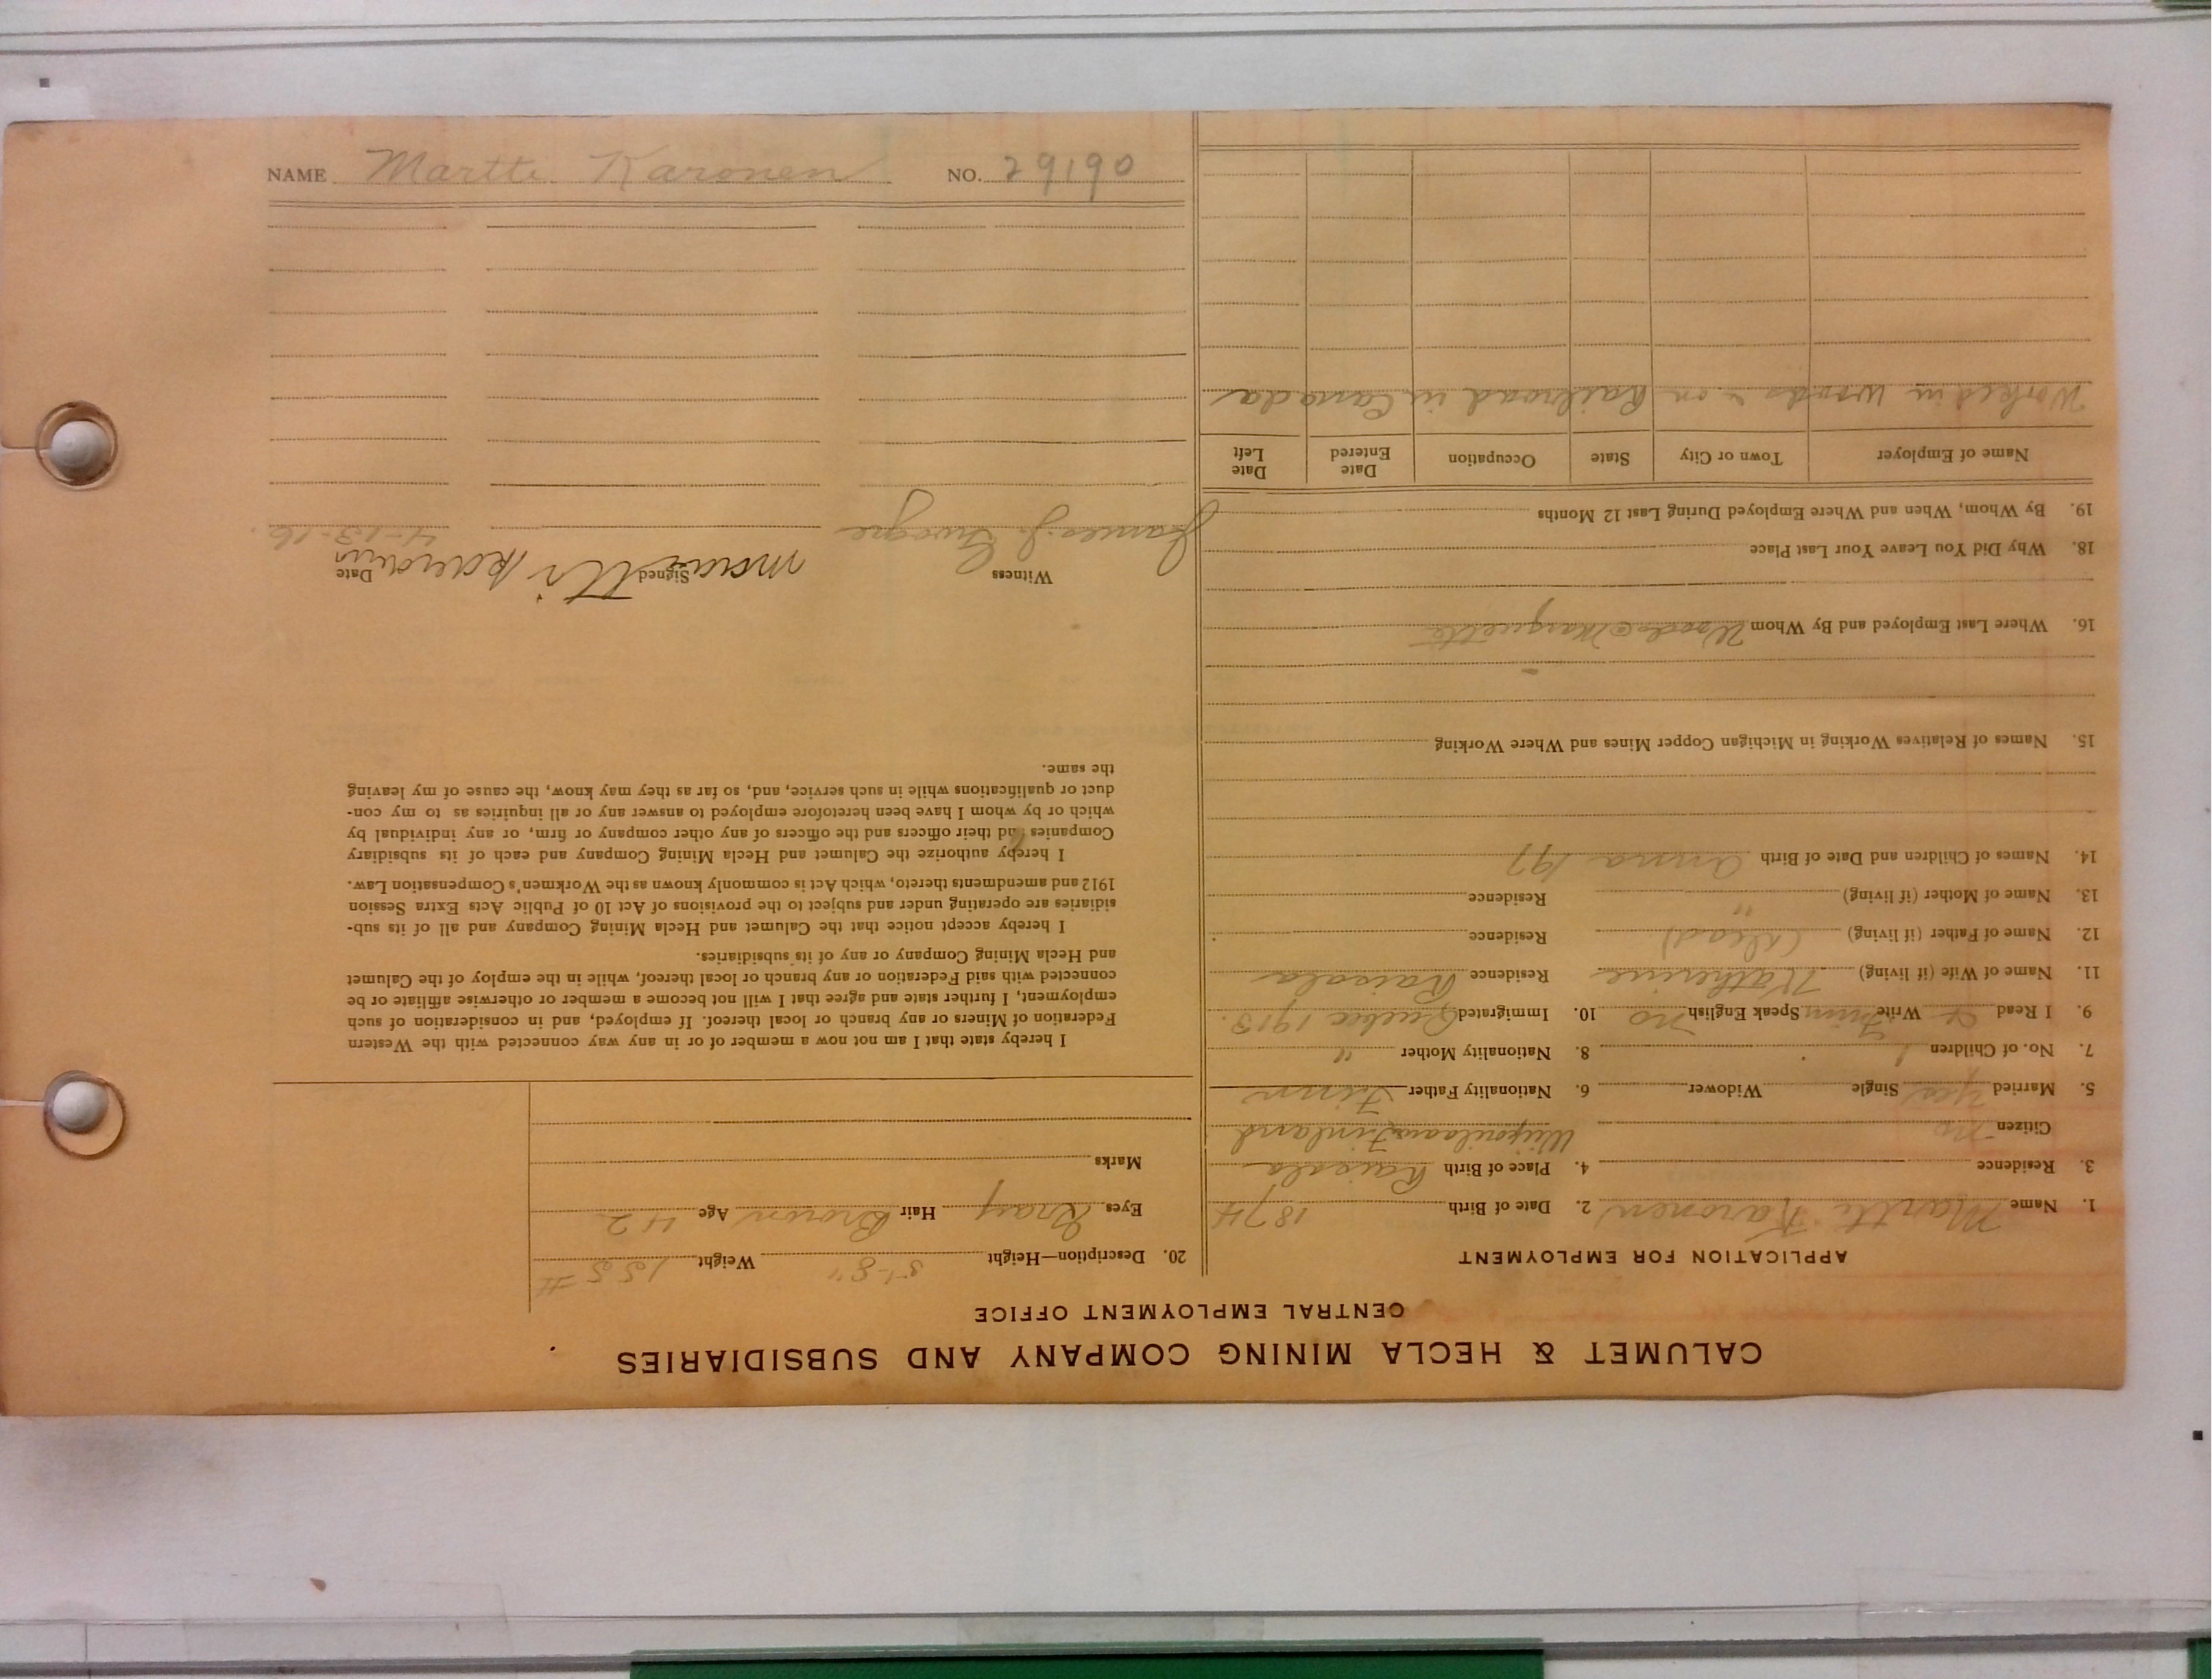 NAME Martti Karonen NO. 29190
CALUMET & HECLA MINING COMPANY AND SUBSIDIARIES
CENTRAL EMPLOYMENT OFFICE
APPLICATION FOR EMPLOYMENT
1. Name Martti Karonen 2. Date of Birth 1874
3. Residence 4. Place of Birth Raisala
Citizen no Finland
5. Married yes Single Widower 6. Nationality Father Finn
7. No. of Children 1 8. Nationality Mother "
9. I Read & Write Finn Speak English no 10. Immigrated Quebec 1913.
11. Name of Wife (if living) Katherine Residence Raisala
12. Name of Father (if living) (dead) Residence
13. Name of Mother (if living) " Residence
14. Names of Children and Date of Birth Anna 197
15. Names of Relatives Working in Michigan Copper Mines and Where Working
16. Where Last Employed and By Whom Woods @ Marquette
18. Why Did You Leave Your Last Place
19. By Whom, When and Where Employed During Last 12 Months
Name of Employer Town or City State Occupation Date Entered Date Left
Worked in woods & on Railroad in Canada
20. Description—Height 5'-8" Weight 155 #
Eyes Gray Hair Brown Age 42
Marks
I hereby state that I am not now a member of or in any way connected with the Western
Federation of Miners or any branch or local thereof. If employed, and in consideration of such
employment, I further state and agree that I will not become a member or otherwise affiliate or be
connected with said Federation or any branch or local thereof, while in the employ of the Calumet
and Hecla Mining Company or any of its subsidiaries.
I hereby accept notice that the Calumet and Hecla Mining Company and all of its sub-
sidiaries are operating under and subject to the provisions of Act 10 of Public Acts Extra Session
1912 and amendments thereto, which Act is commonly known as the Workmen's Compensation Law.
I hereby authorize the Calumet and Hecla Mining Company and each of its subsidiary
Companies and their officers and the officers of any other company or firm, or any individual by
which or by whom I have been heretofore employed to answer any or all inquiries as to my con-
duct or qualifications while in such service, and, so far as they may know, the cause of my leaving
the same.
Witness Signed Date
James J. 4-13-16.